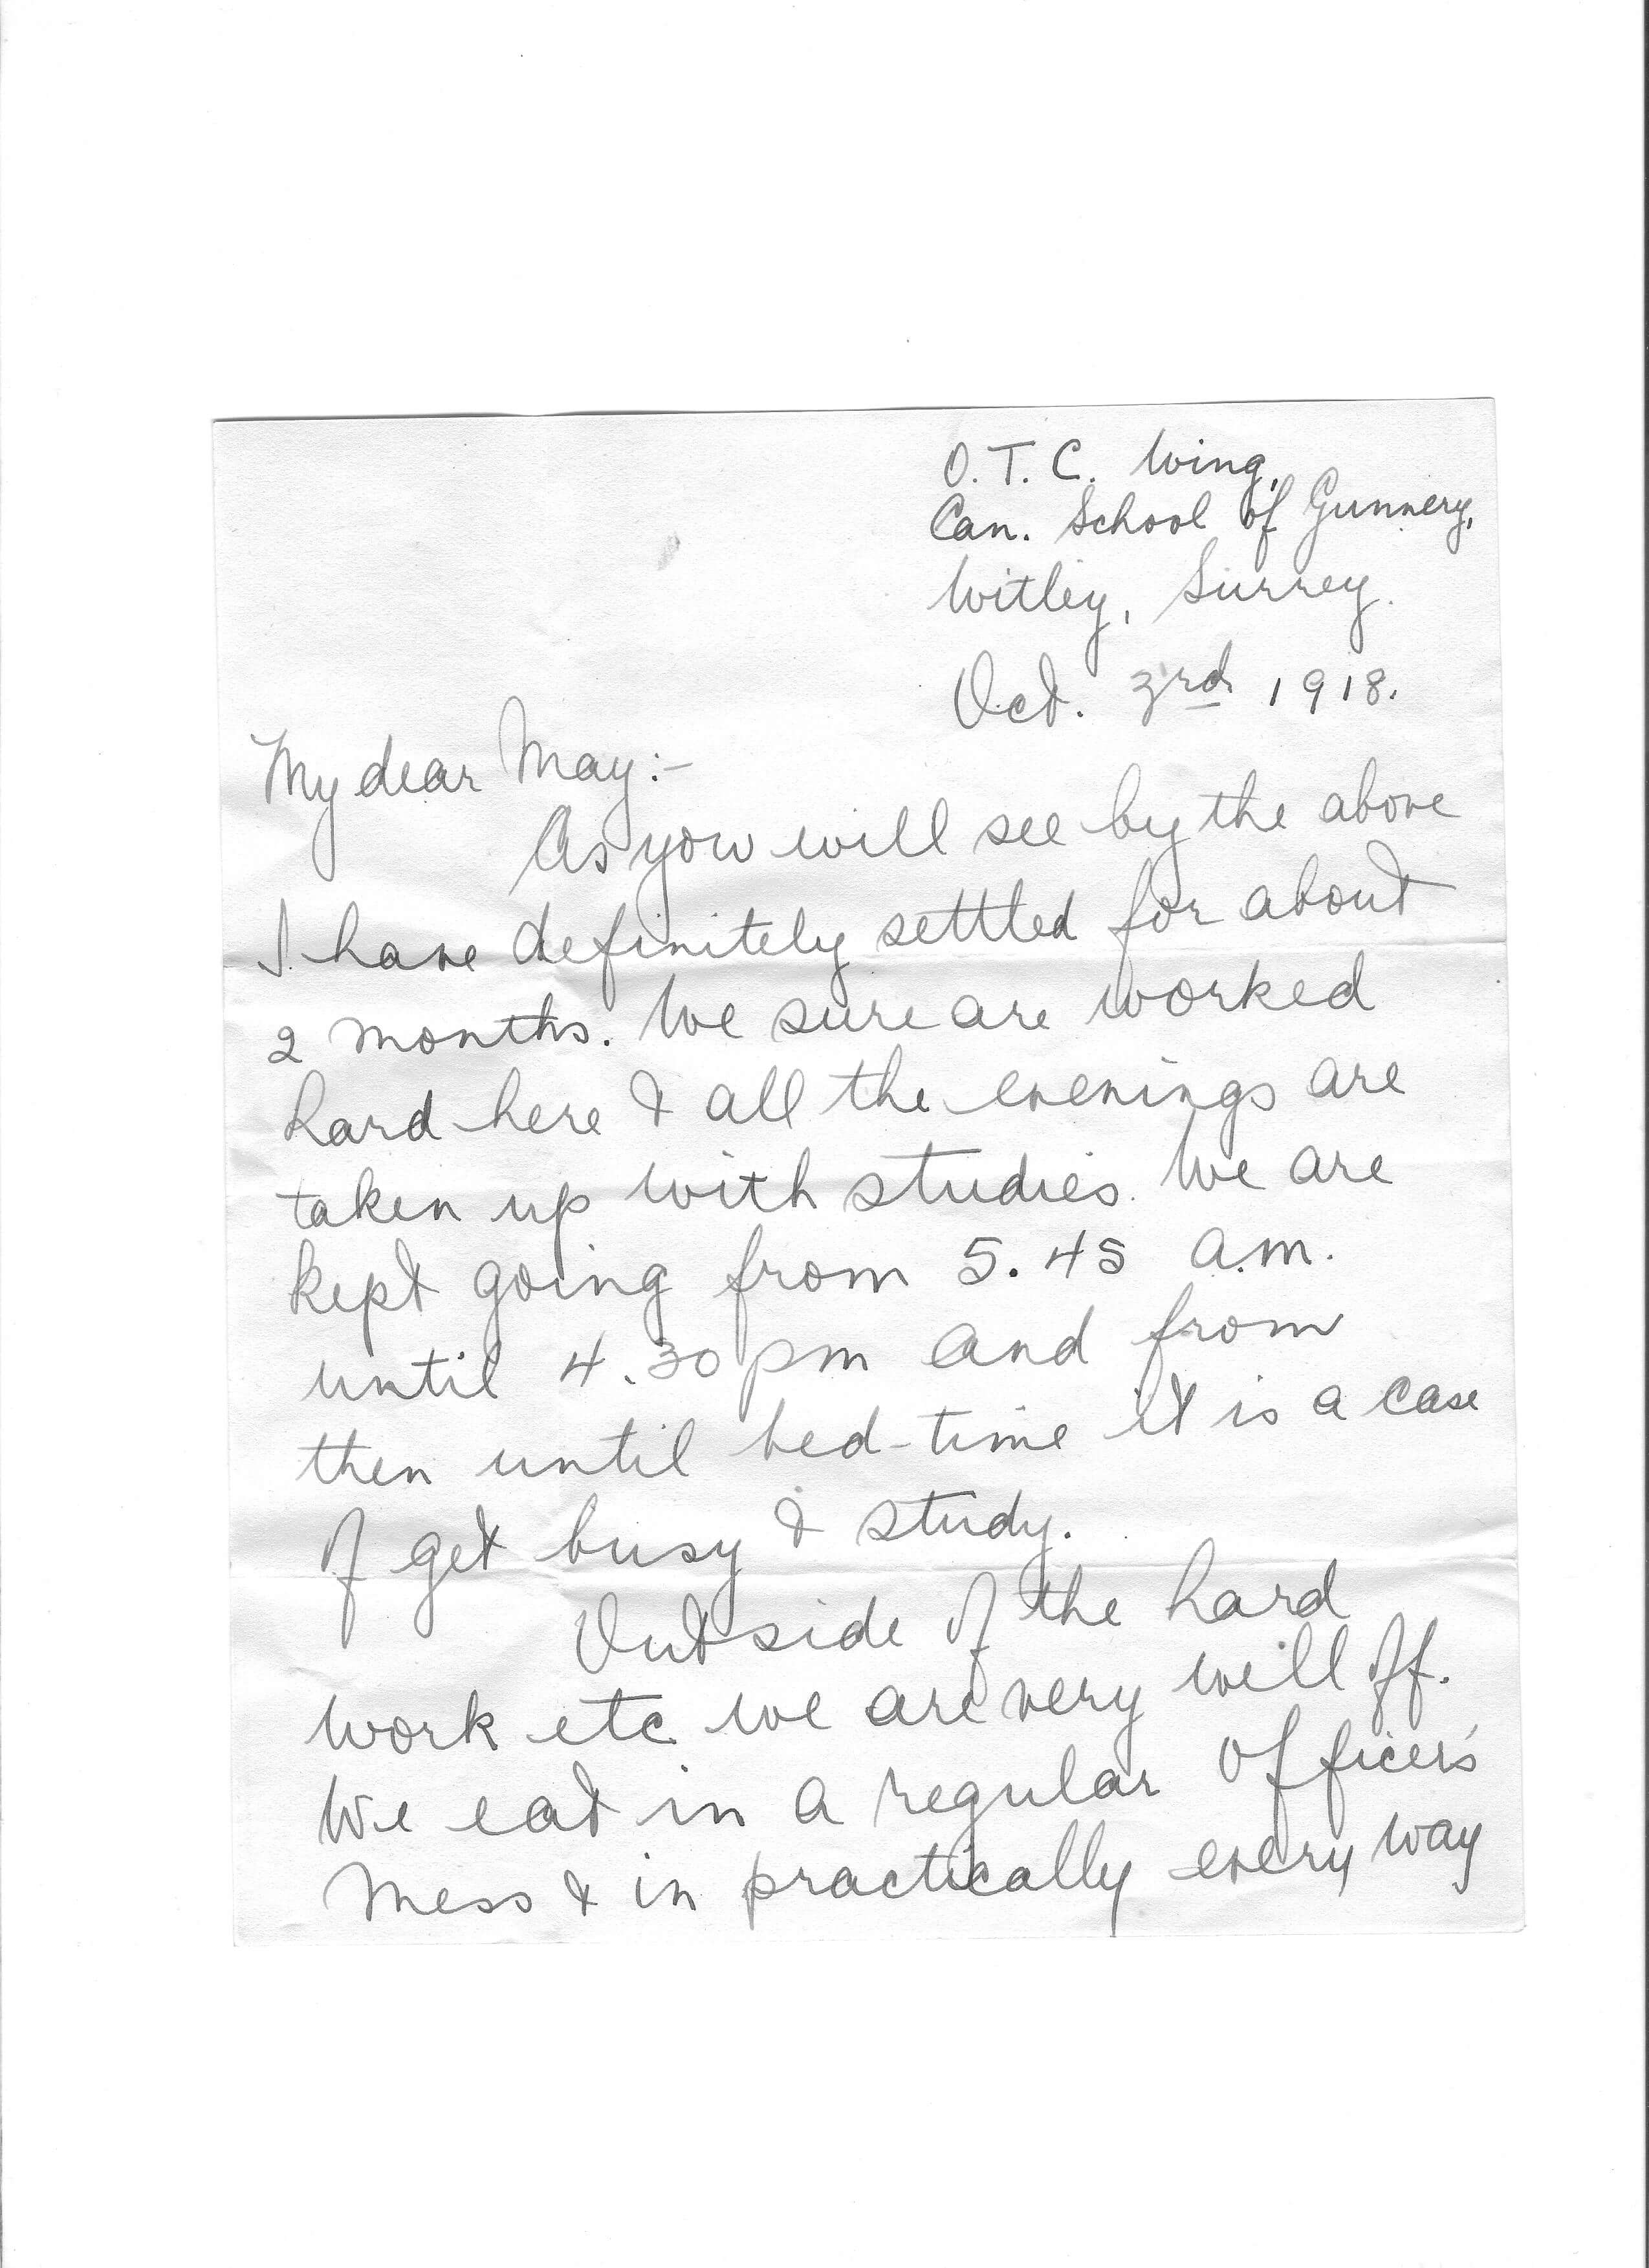 O. T. C. Wing,
Can. School of Gunnery,
Witley, Surrey.
Oct. 3rd 1918.
My dear May:-
As you will see by the above
I have definitely settled for about
2 months. We sure are worked
hard here & all the evenings are
taken up with studies. We are
kept going from 5.45 a.m.
until 4.30 pm and from
then until bed-time it is a case
of get busy & study.
Outside of the hard
work etc we are very well off.
We eat in a regular Officer's
Mess & in practically every way